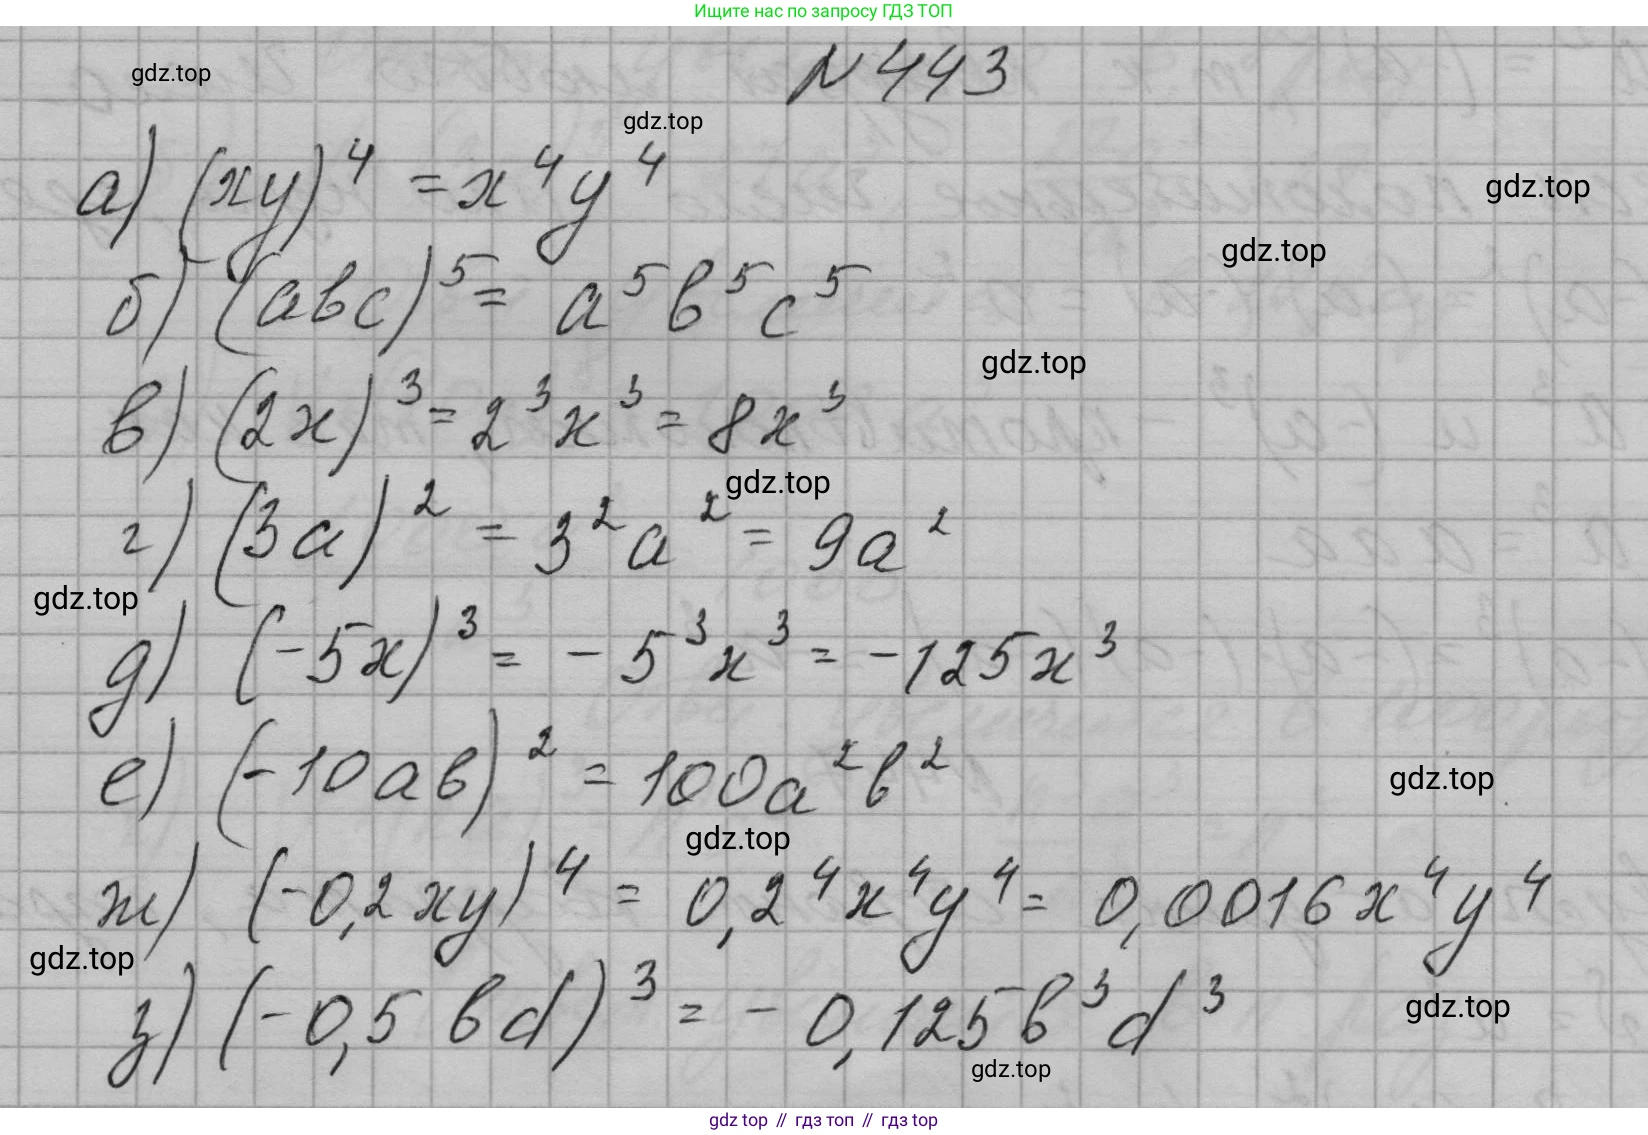 Ищите нас по запросу ГДЗ ТОП
N 443
gdz.top
gdz.top
а) (xy)⁴ = x⁴y⁴
gdz.top
gdz.top
б) (abc)⁵ = a⁵b⁵c⁵
gdz.top
в) (2x)³ = 2³x³ = 8x³
gdz.top
г) (3a)² = 3²a² = 9a²
gdz.top
д) (-5x)³ = -5³x³ = -125x³
е) (-10ab)² = 100a²b²
gdz.top
gdz.top
ж) (-0,2xy)⁴ = 0,2⁴x⁴y⁴ = 0,0016x⁴y⁴
gdz.top
з) (-0,5bd)³ = -0,125b³d³
gdz.top
gdz.top
gdz top // гдз топ // гдз top